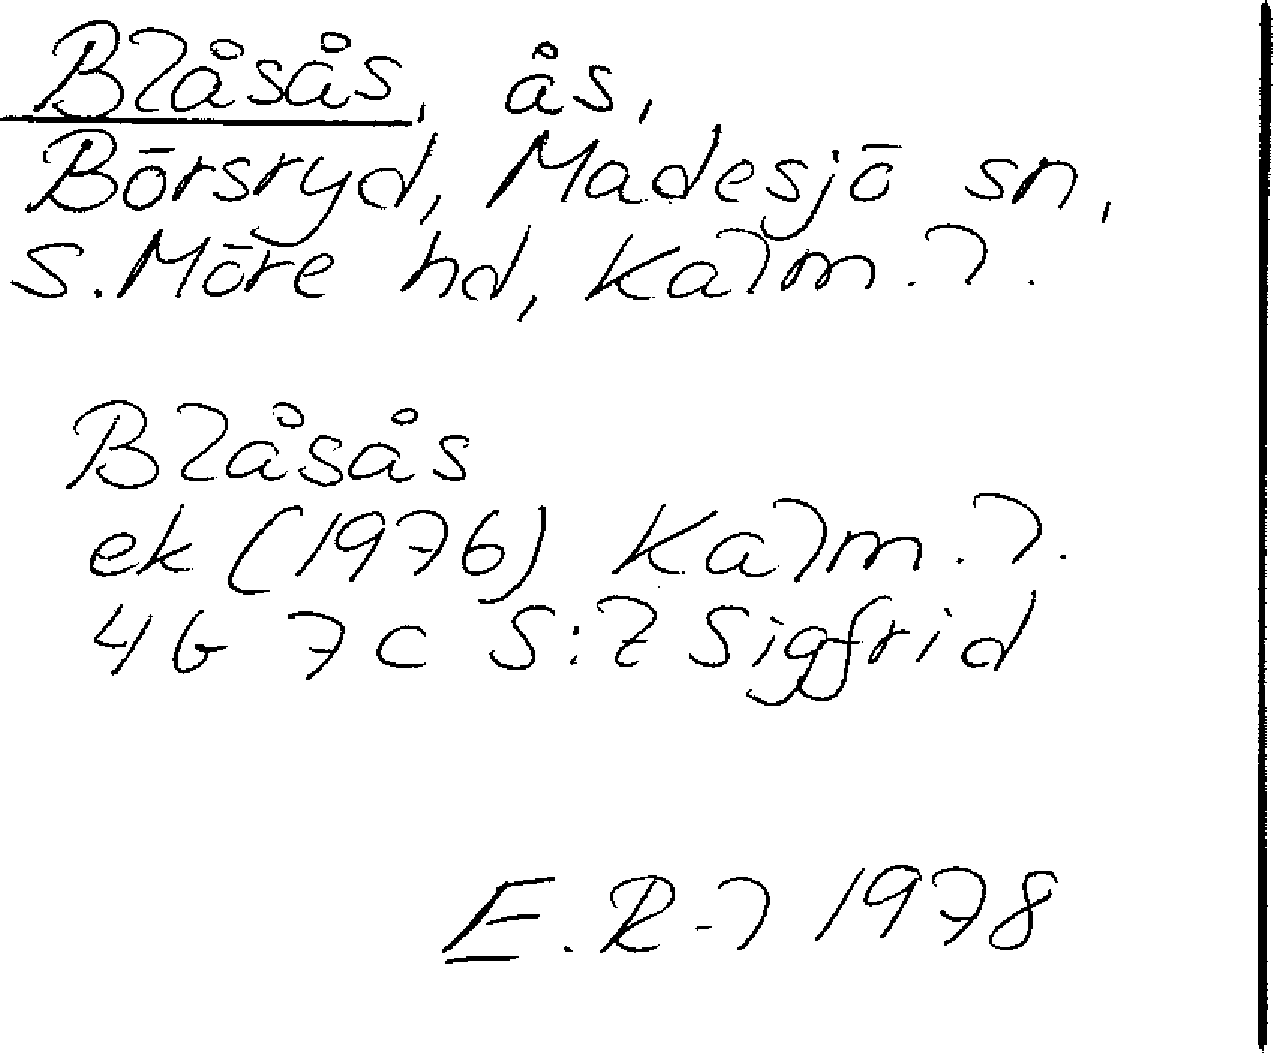 Blåsås, ås,
Börsryd, Madesjö sn,
S. Möre hd, Kalm. l.
Blåsås
ek (1976) Kalm. l.
4G 7c S:t Sigfrid
E. R-l 1978